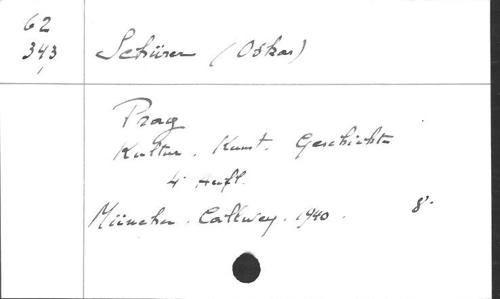 62
343
Schürer (Oskar)
Prag
Kultur. Kunst. Geschichte
4. Aufl.
München. Callwey. 1940. 8°.